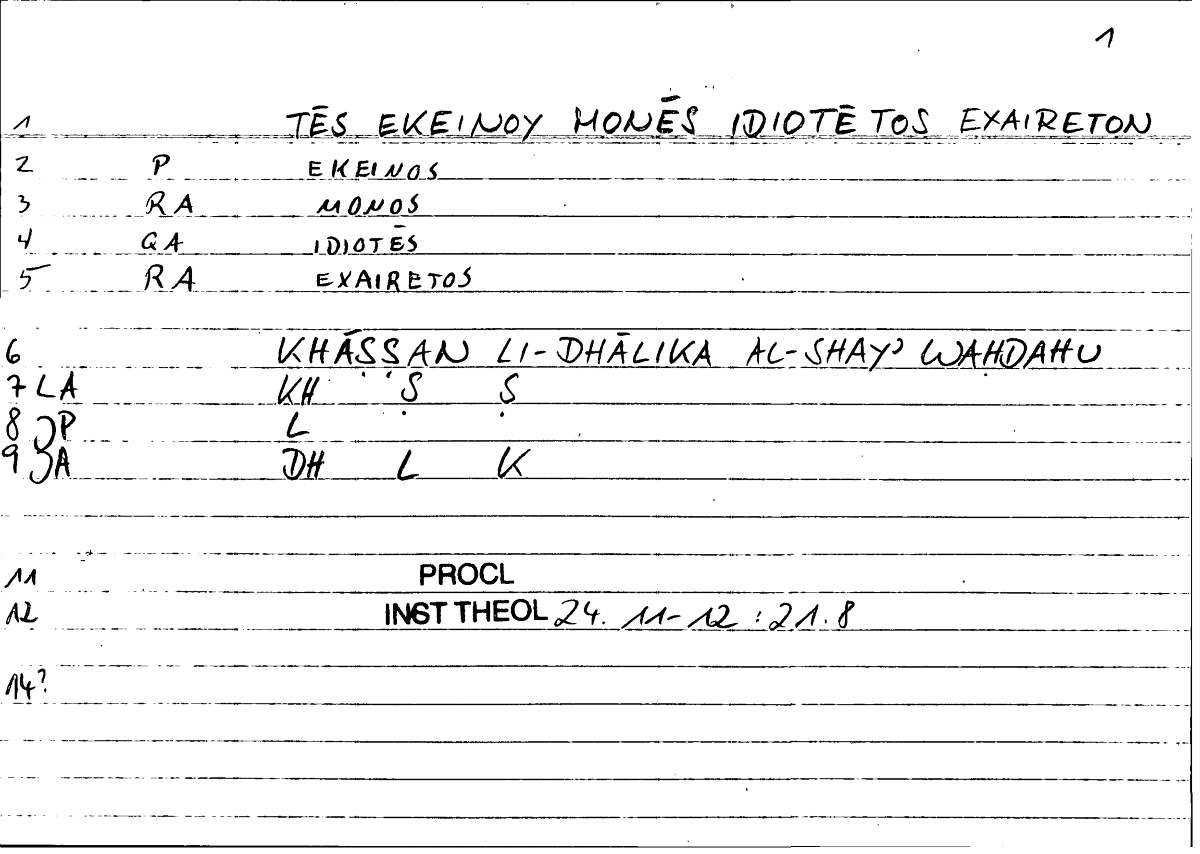 1
1 TĒS EKEINOY MONĒS IDIOTĒTOS EXAIRETON
2 P EKEINOS
3 RA MONOS
4 QA IDIOTĒS
5 RA EXAIRETOS
6 KHĀṢṢAN LI-DHĀLIKA AL-SHAYʾ WAḤDAHU
7 LA KH Ṣ Ṣ
8 P L
9 A DH L K
11 PROCL
12 INST THEOL 24. 11-12 : 21.8
14?